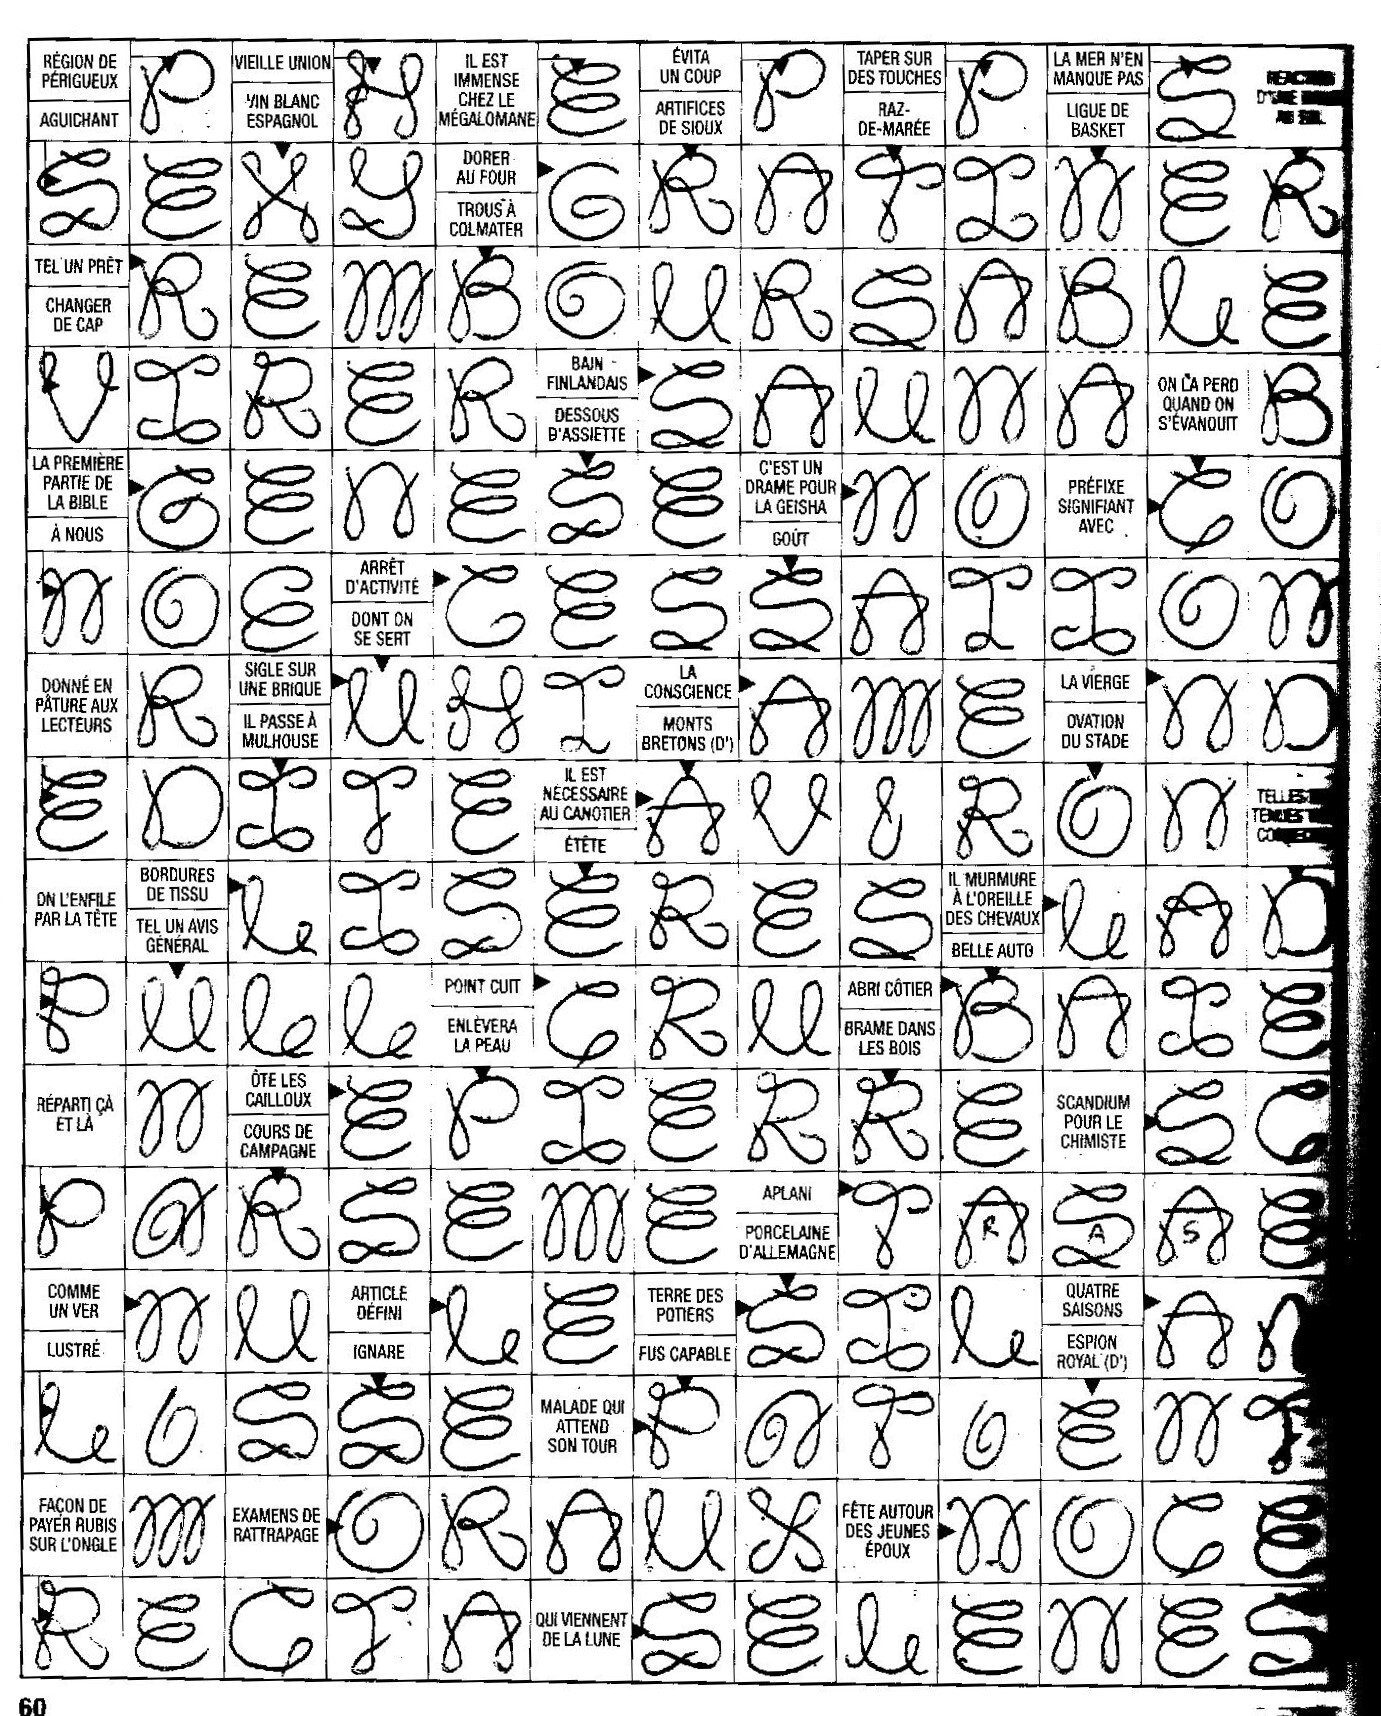 RÉGION DE
PÉRIGUEUX
AGUICHANT
P
VIEILLE UNION
VIN BLANC
ESPAGNOL
H
IL EST
IMMENSE
CHEZ LE
MÉGALOMANE
E
ÉVITA
UN COUP
ARTIFICES
DE SIOUX
P
TAPER SUR
DES TOUCHES
RAZ-
DE-MARÉE
P
LA MER N'EN
MANQUE PAS
LIGUE DE
BASKET
S
SEXY
DORER
AU FOUR
TROUS À
COLMATER
GRATINER
TEL UN PRÊT
CHANGER
DE CAP
REMBOURSABLE
VIRER
BAIN
FINLANDAIS
DESSOUS
D'ASSIETTE
SAUNA
ON LA PERD
QUAND ON
S'ÉVANOUIT
B
LA PREMIÈRE
PARTIE DE
LA BIBLE
À NOUS
GENESE
C'EST UN
DRAME POUR
LA GEISHA
GOÛT
NO
PRÉFIXE
SIGNIFIANT
AVEC
CO
NOE
ARRÊT
D'ACTIVITÉ
DONT ON
SE SERT
CESSATION
DONNÉ EN
PÂTURE AUX
LECTEURS
R
SIGLE SUR
UNE BRIQUE
IL PASSE À
MULHOUSE
UHT
LA
CONSCIENCE
MONTS
BRETONS (D')
AME
LA VIERGE
OVATION
DU STADE
ND
EDITE
IL EST
NÉCESSAIRE
AU CANOTIER
ÉTÊTE
AVIRON
ON L'ENFILE
PAR LA TÊTE
BORDURES
DE TISSU
TEL UN AVIS
GÉNÉRAL
LISERES
IL MURMURE
À L'OREILLE
DES CHEVAUX
BELLE AUTO
LAD
PULL
POINT CUIT
ENLÈVERA
LA PEAU
CRU
ABRI CÔTIER
BRAME DANS
LES BOIS
BAIE
RÉPARTI ÇÀ
ET LÀ
N
ÔTE LES
CAILLOUX
COURS DE
CAMPAGNE
EPIERRE
SCANDIUM
POUR LE
CHIMISTE
SC
PARSEME
APLANI
PORCELAINE
D'ALLEMAGNE
TASAE
R A S
COMME
UN VER
LUSTRÉ
NU
ARTICLE
DÉFINI
IGNARE
LE
TERRE DES
POTIERS
FUS CAPABLE
SIL
QUATRE
SAISONS
ESPION
ROYAL (D')
AN
LOSSE
MALADE QUI
ATTEND
SON TOUR
PATOENT
FAÇON DE
PAYER RUBIS
SUR L'ONGLE
M
EXAMENS DE
RATTRAPAGE
ORAUX
FÊTE AUTOUR
DES JEUNES
ÉPOUX
NOCE
RECTA
QUI VIENNENT
DE LA LUNE
SELENES
60